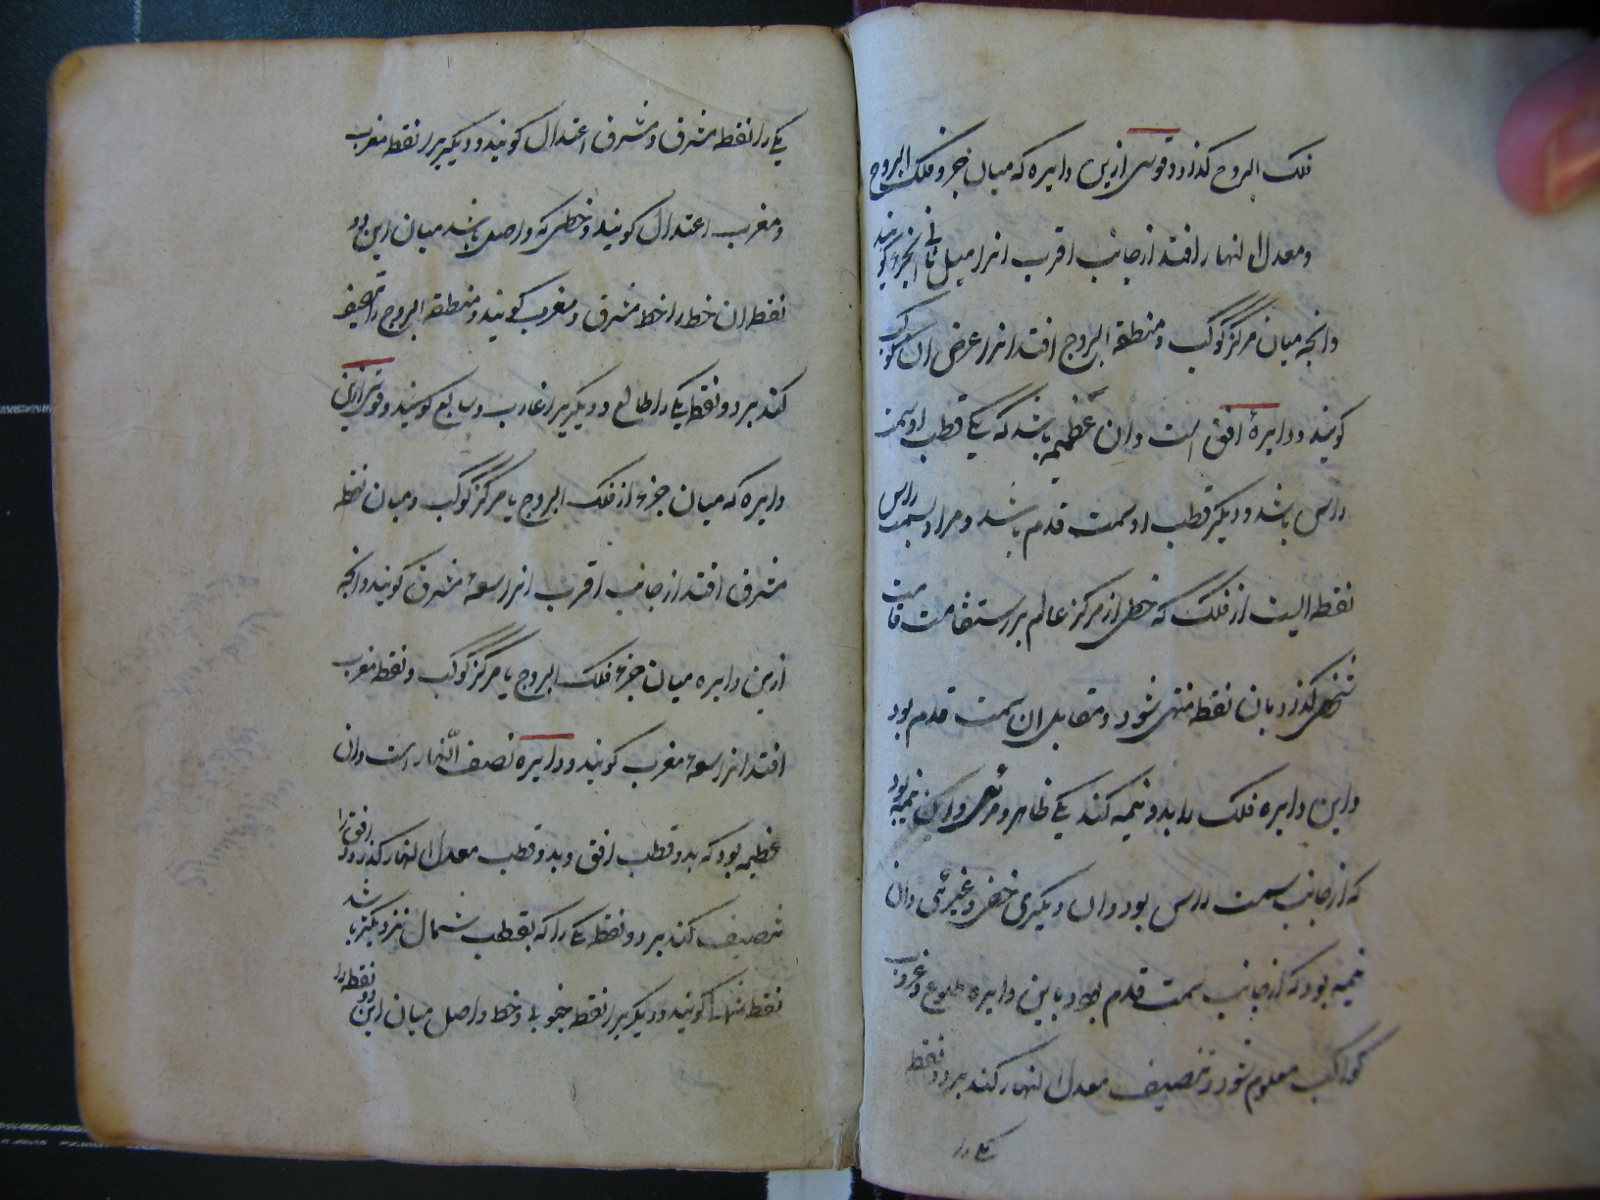 فلک البروج کذرد و قوسی ازین دایره که میان جزو فلک البروج
و معدل النهار افتد از جانب اقرب انرا میل ثانی انجزء کویند
وانچه میان مرکز کوکب و منطقه البروج افتد انرا عرض ان کوکب
کویند و دایرهٔ افق است وان عظیمه باشد که یکی قطب او سمت
راس باشد و دیکر قطب او سمت قدم باشد و مراد بسمت راس
نقطه ایست از فلک که خطی از مرکز عالم بر استقامت قامت
شخص کذرد بان نقطه منتهی شود و مقابل ان سمت قدم بود
واین دایره فلک را بدو نیمه کند یکی ظاهر و مرئی وان نیمه بود
که از جانب سمت راس بود وان دیکری خفی و غیر مرئی وان
نیمه بود که از جانب سمت قدم بود و باین دایره طلوع و غروب
کواکب معلوم شود و تنصیف معدل النهار کند بر دو نقطه
یکی را
یکی را نقطه مشرق و مشرق اعتدال کویند و دیکریرا نقطه مغرب
و مغرب اعتدال کویند و خطی که واصل باشد میان این دو
نقطه ان خط را خط مشرق و مغرب کویند و منطقه البروج را تنصیف
کند بر دو نقطه یکی را طالع و دیکریرا غارب و سابع کویند و قوسی ازین
دایره که میان جزء از فلک البروج یا مرکز کوکب و میان نقطه
مشرق افتد از جانب اقرب انرا سعهٔ مشرق کویند وانچه
ازین دایره میان جزء فلک البروج یا مرکز کوکب و نقطه مغرب
افتد انرا سعهٔ مغرب کویند و دایره نصف النّهار است وان
عظیمه بود که بدو قطب افق و بدو قطب معدل النهار کذرد و افق را
تنصیف کند بر دو نقطه یکی را که بقطب شمال نزدیکتر باشد
نقطه شمال کویند و دیکریرا نقطه جنوب و خط واصل میان این دو نقطه را